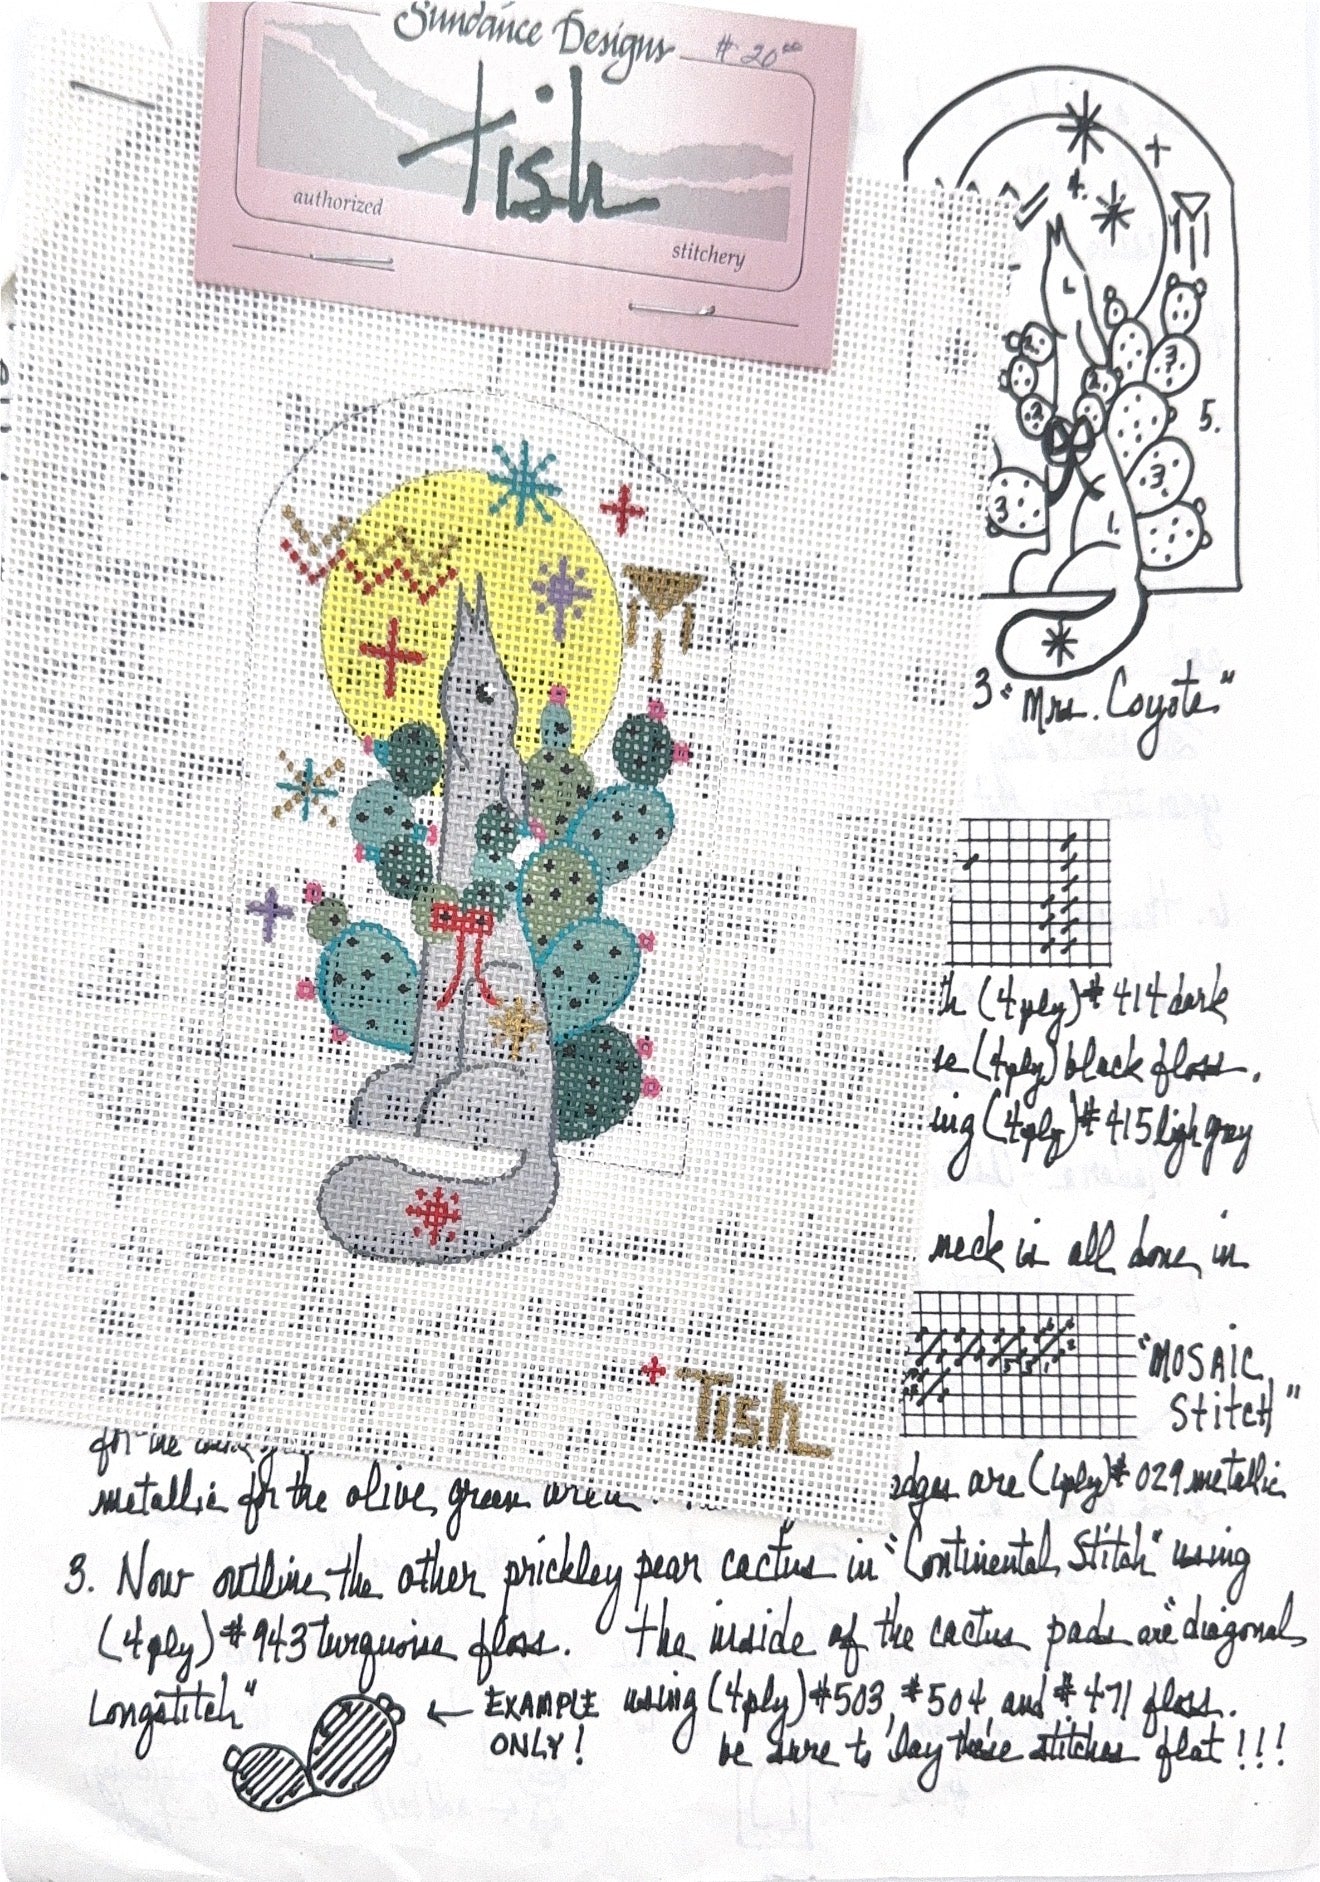 Sundance Designs
# 20⁰⁰
tish
authorized
stitchery
4.
2.
3
2.
2
3
5.
3
3
1.
3 "Mrs. Coyote"
(4ply) # 414 dark
(4ply) black floss.
(4ply) # 415 ligh gray
neck is all done in
"MOSAIC
Stitch"
Tish
for the
metallic for the olive green area.
are (1ply) # 029 metallic
3. Now outline the other prickley pear cactus in "Continental Stitch" using
(4ply) # 943 turquoise floss. The inside of the cactus pads are "diagonal
Longstitch" ← EXAMPLE ONLY! using (4ply) #503, #504, and #471 floss.
be sure to lay these stitches flat!!!